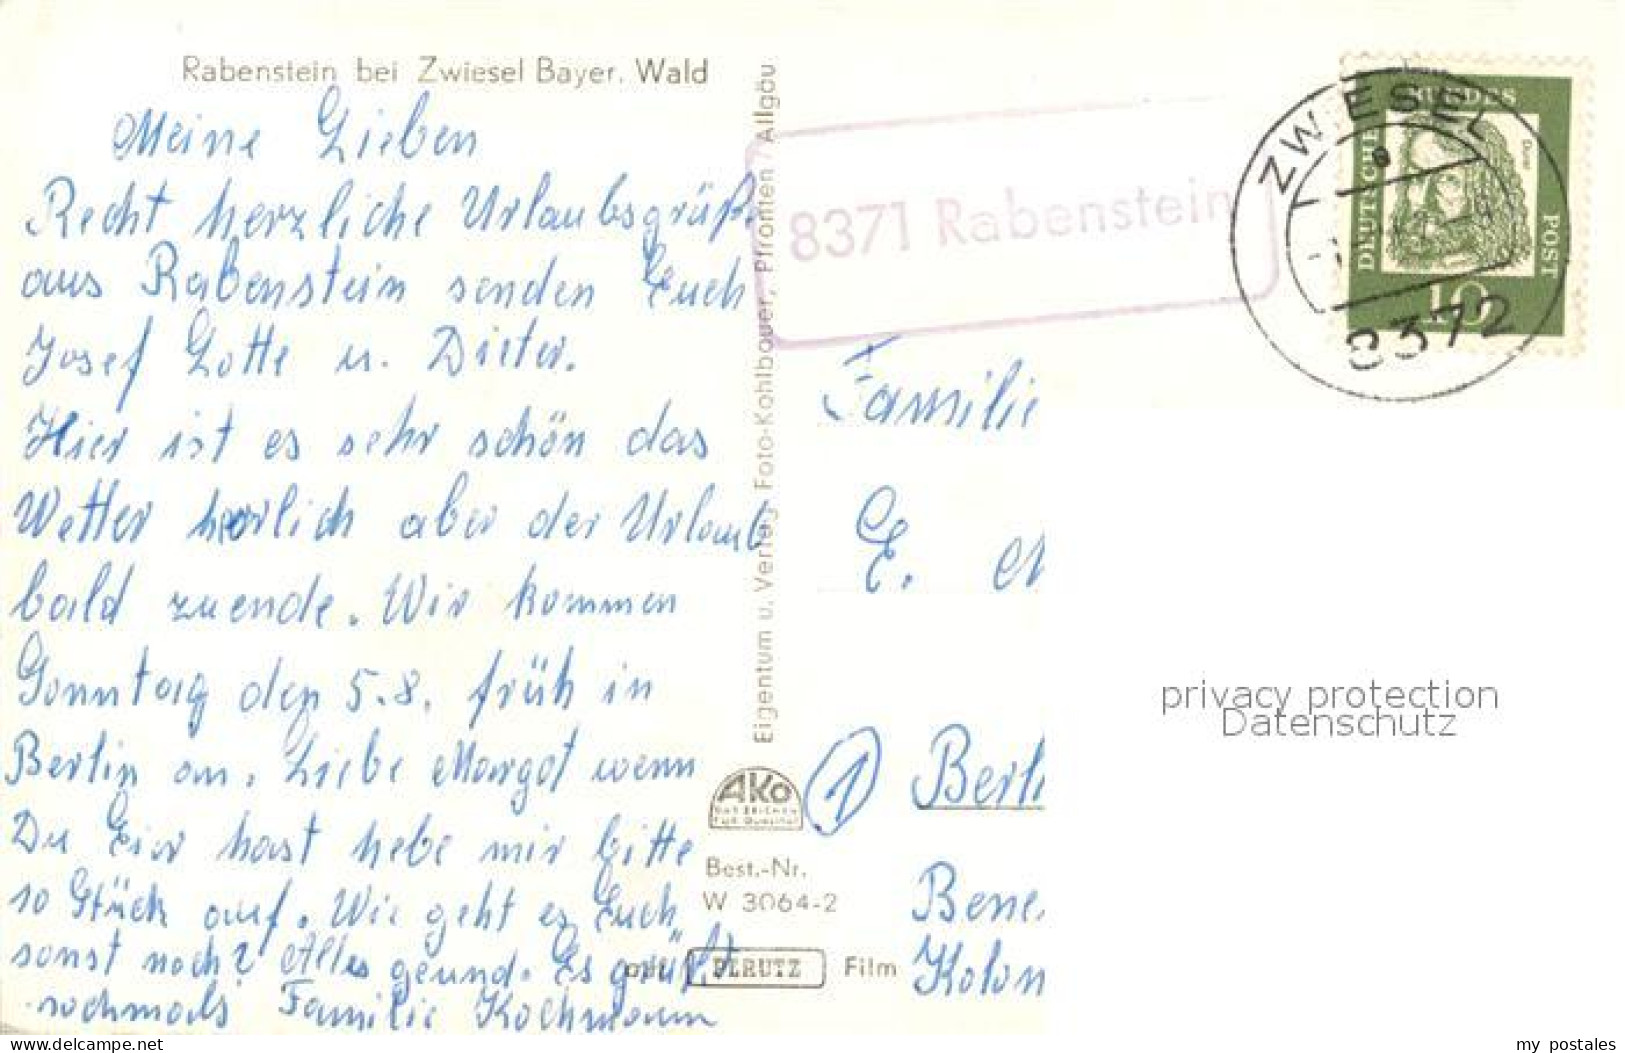 Rabenstein bei Zwiesel Bayer. Wald
Meine Lieben
Recht herzliche Urlaubsgrüße
aus Rabenstein senden Euch
Josef Lotte u. Dieter.
Hier ist es sehr schön das
Wetter herrlich aber der Urlaub
bald zuende. Wir kommen
Sonntag den 5.8. früh in
Berlin an. Liebe Margot wenn
Du Eier hast hebe mir bitte
10 Stück auf. Wie geht es Euch
sonst noch? Alles geund. Es grüßt
nochmals Familie Kochmann
Eigentum u. Verlag Foto-Kohlbauer, Pfronten / Allgäu
8371 Rabenstein
ZWIESEL
8372
DEUTSCHE BUNDESPOST
Dürer
10
Familie
E. M
1 Berli
Bene
Kolon
AKO
DAS ZEICHEN
FÜR QUALITÄT
Best.-Nr.
W 3064-2
auf PERUTZ Film
privacy protection
Datenschutz
delcampe.net
my_postales